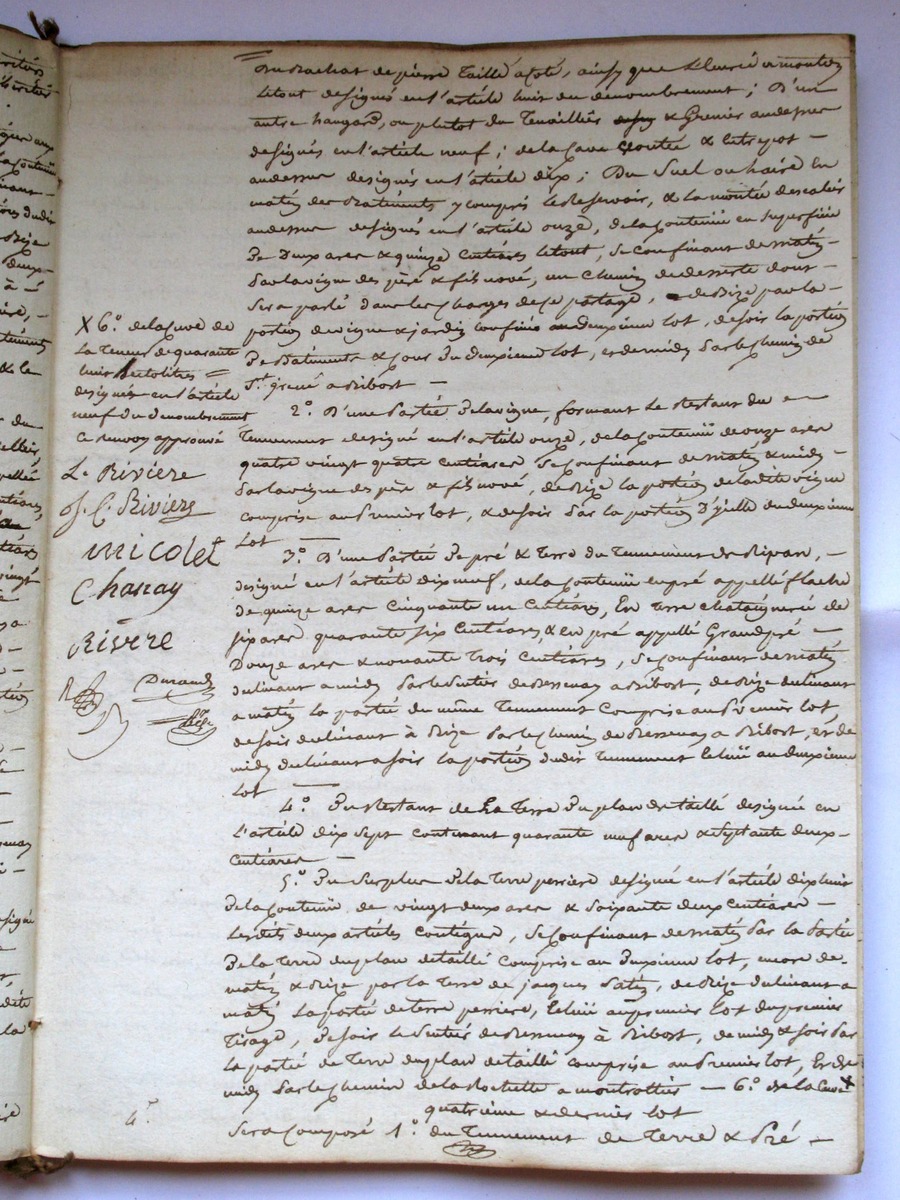 de pierre taillé à côté, ainsy que
le tout designés en l'article huit du denombrement ; D'un
autre hangard, ou plutot du Tenaillér & Grenier audessus
designés en l'article neuf ; de la Cave voutée & entrepot —
audessus designés en l'article dix ; Du Suel ou haire en
matin des Batiments y compris le Reservoir, & la montée descalier
audessus designés en l'article onze, de la Contenüe en superficie
De Deux ares & quinze Centiares letout, se Confinant de matin
Par la vigne des père & fils novè, un chemin de desserte dont —
sera parlé dans les charges de ce partage, de Bize par la —
portion de vigne & jardin confinée au deuxieme lot, de soir la portion
De Batiments & Cour Du deuxieme lot, et de midy Par le Chemin de
St a Ribost —
2.° D'une Partie De la vigne, formant Le Restant du —
Tennement designé en l'article onze, de la Contenüe de onze ares
quatre vingt quatre centiares se Confinant de matin & midy —
Par la vigne des père & fils novè, de Bize la portion de la dite vigne
comprise au Premier lot, & de soir Par la portion D'ycelle du deuxieme
Lot —
3.° D'une Partie De pré & Terre du Tennement de Rivan, —
designé en l'article dix neuf, de la Contenüe en pré appellé flache
de quinze ares Cinquante un Centiares, En Terre chataignerée de
six ares quarante six Centiares, & en pré appellé Grand pré —
Douze ares & nonante trois Centiares, se Confinant de matin
du levant a midy Par le Sentier de Bessenay a Ribost, de Bize du levant
a matin la partie du même Tennement Comprise au Premier lot,
de soir du levant à Bize Par le Chemin de Bessenay a Ribost, et de
midy du levant a soir la portion dudit Tennement Echüe au deuxieme
Lot —
4.° Du Restant de La Terre Du plan de taillé designée en
L'article dix sept contenant quarante neuf ares & septante deux —
Centiares —
5.° Du Surplus De la Terre perriere designée en l'article dix huit
De la Contenüe de vingt deux ares & soixante deux Centiares —
Lesdits deux articles Contigus, se Confinant de matin Par la Partie
De la Terre du plan de taillé comprise au Deuxieme lot, encore de —
matin & Bize par la Terre de jacques Patin, de Bize du levant a
matin La partie de terre perriere, Echüe au premier lot du premier
Tirage, De soir le Sentier de Bessenay à Ribost, de midy & soir Par
La partie de Terre du plan de taillé comprise au Premier lot, Et de
midy Par le Chemin de la Rochette a montrottier — 6.° de la Cuve X
quatrième & dernier lot
Sera Composé 1.° du Tennement de Terre & Pré —
X 6.° de la Cuve de
La Teneur de quarante
huit hectolitres =
designée en l'article
neuf du denombrement
Ce renvoy approuvé
L. Riviere
J. C. Riviere
micolet
Chanay
Rivère
Durand
4.e